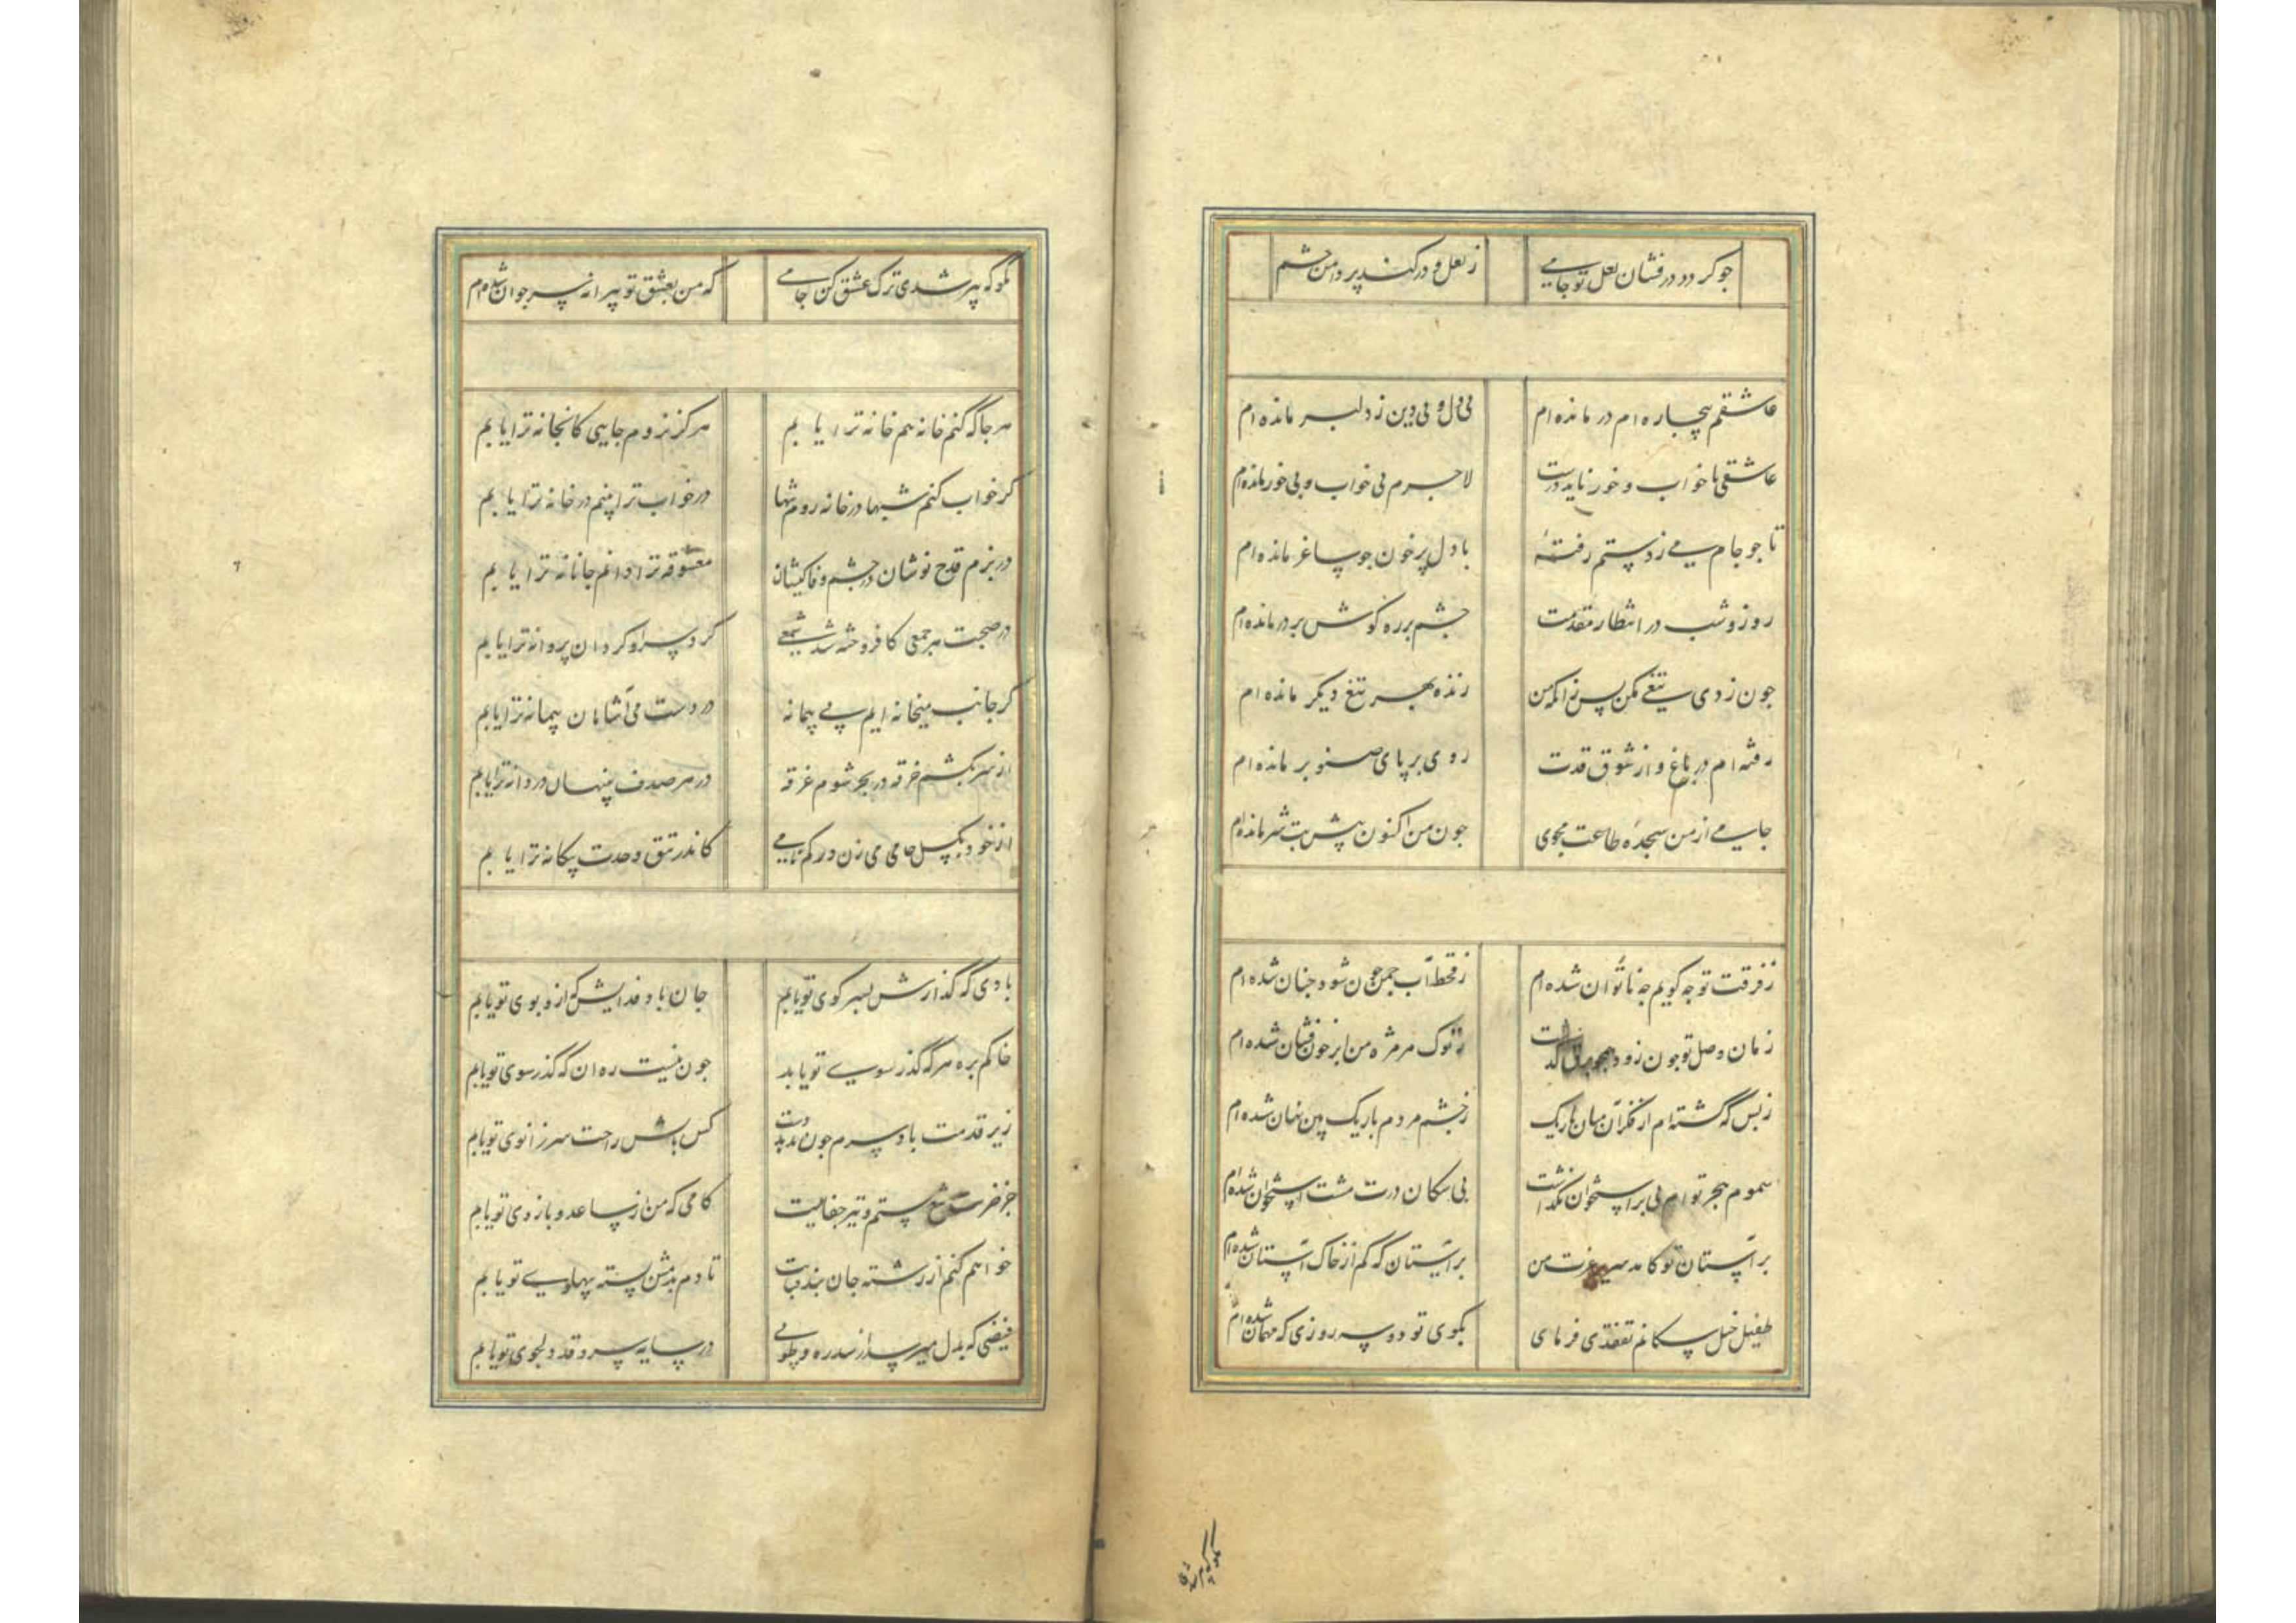 جو کردد درفشان لعل تو جامی
ز لعل و در کند پر دامن چشم
عاشقم بیچاره ام در مانده ام
بی دل و بی دین ز دلبر مانده ام
عاشقی با خواب و خور ناید درست
لاجرم بی خواب و بی خور مانده ام
تا جو جام می ز دستم رفتهٔ
با دل پر خون جو ساغر مانده ام
روز و شب در انتظار مقدمت
چشم بر ره کوش بر در مانده ام
جون زدی تیغی مکن بس زانکه من
زنده بهر تیغ دیکر مانده ام
رفته ام در باغ و از شوق قدت
روی بر پای صنوبر مانده ام
جامی از من سجده طاعت مجوی
جون من اکنون پیش بت سر مانده ام
ز فرقت تو جه کویم جه ناتوان شده ام
ز قحط آب چمن جون شود جنان شده ام
زمان وصل تو جون زود
ز نوک هر مژه من ابر خون فشان شده ام
ز بس که گشته ام از فکر آن میان باریک
ز چشم مردم باریک بین نهان شده ام
سموم هجر توام بی بر استخوان نکذاشت
پی سکان درت مشت استخوان شده ام
بر آستان تو کامد سریر عزت من
بر آستان که کم از خاک آستان شده ام
طفیل خیل سکانم تفقدی فرمای
بکوی تو دو سه روزی که مهمان شده ام
مکو که پیر شدی
مکو که پیر شدی ترک عشق کن جامی
که من بعشق تو پیرانه سر جوان شده ام
هر جا که کنم خانه هم خانه ترا یابم
هرکز نروم جایی کانجا نه ترا یابم
کر خواب کنم شبها در خانه روم تنها
در خواب ترا بینم در خانه ترا یابم
در بزم قدح نوشان در چشم وفا کیشان
معشوقه ترا دانم جانانه ترا یابم
در صحبت هر جمعی کافروخته شد شمعی
کرد سر او کردان پروانه ترا یابم
کر جانب میخانه ایم پی پیمانه
در دست می آشامان پیمانه ترا یابم
از سر بکشم خرقه در بحر شوم غرقه
در هر صدف پنهان دردانه ترا یابم
از خود بکسل جامی می زن در کم نامی
کاندر تتق وحدت یکانه ترا یابم
بادی که گذارش بسر کوی تو یابم
جان باد فدایش که ازو بوی تو یابم
خاکم بره هر که گذر سوی تو یابد
جون نیست ره آن که گذر سوی تو یابم
زیر قدمت باد سرم جون ندهد دست
کس بالش راحت سر زانوی تو یابم
جز ضربت تیغ ستم و تیر جفا نیست
کامی که من از ساعد و بازوی تو یابم
خواهم کنم از رشته جان بند قبایت
تا دم بدمش بسته پهلوی تو یابم
فیضی که بدل میرسد از سدره و طوبی
در سایه سرو قد دلجوی تو یابم